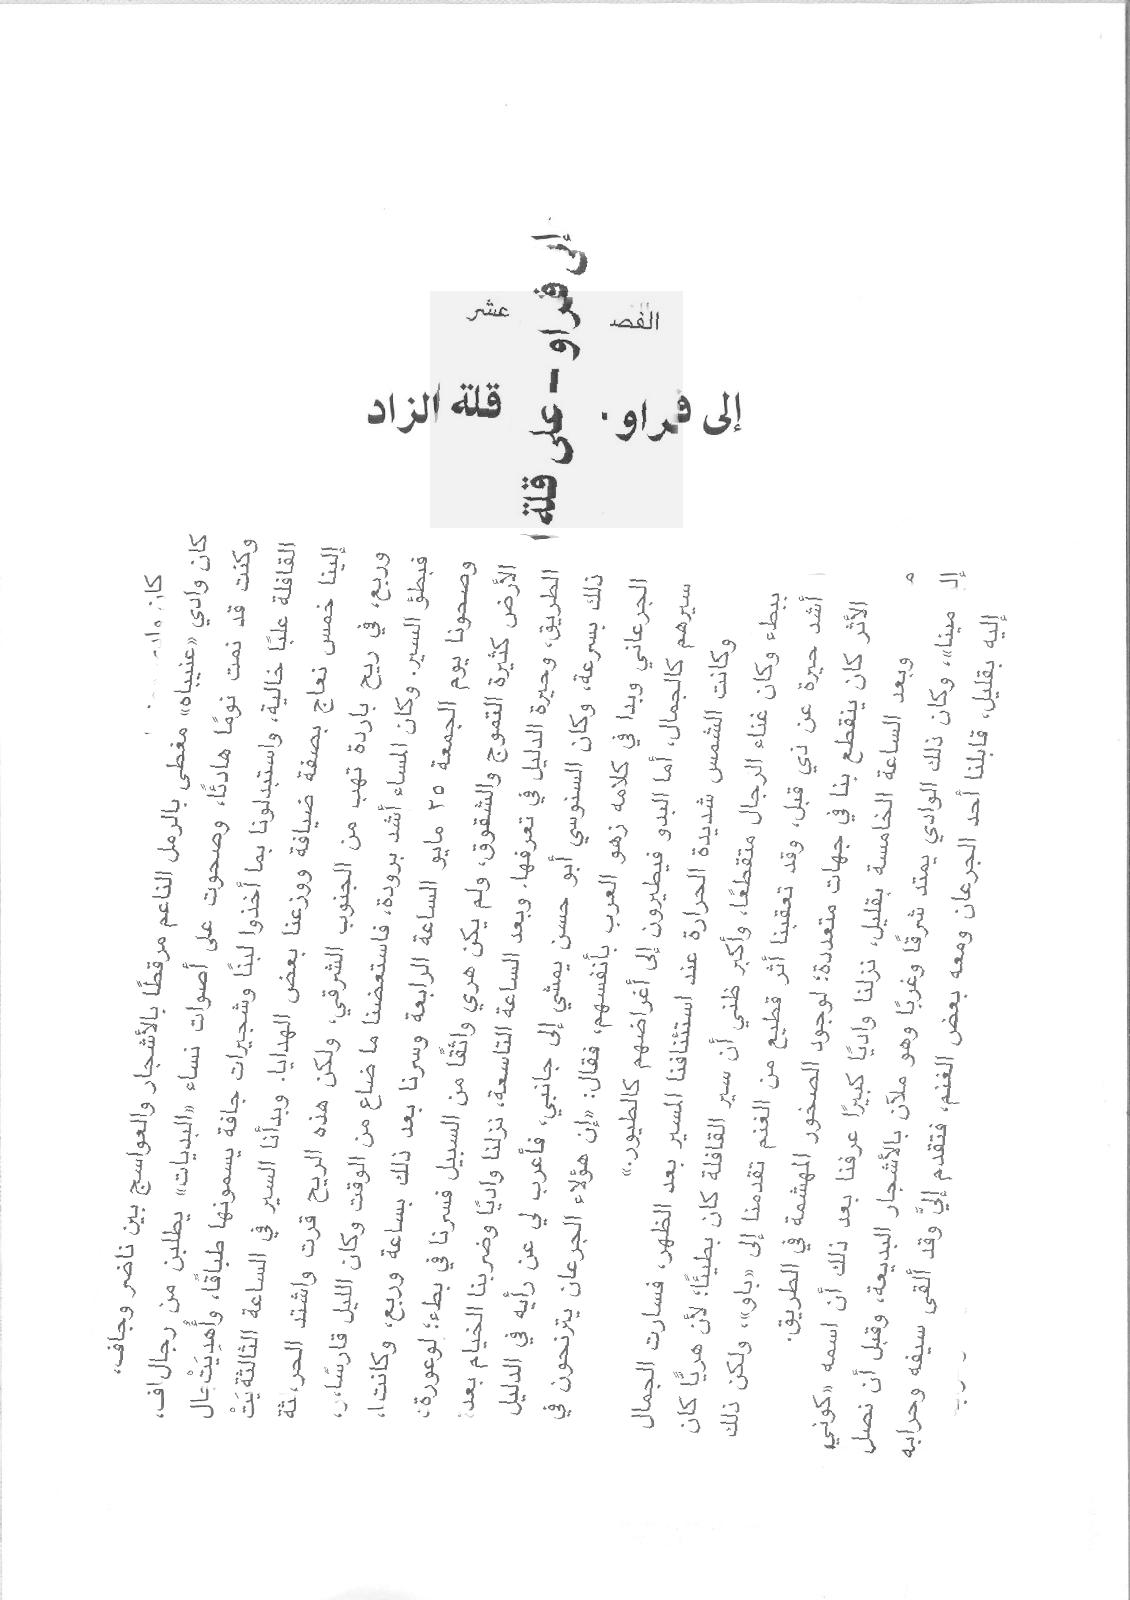 عشر
إلى فراو - على قلة
إلى فراو
قلة الزاد
كان وادي «عنيباه» مغطى بالرمل الناعم مرقطًا بالأشجار والعواسج بين ناضر وجاف،
وكنت قد نمت نومًا هادئًا، وصحوت على أصوات نساء «البديات» يطلبن من رجال
القافلة علبًا خالية، واستبدلونا بما أخذوا لبنًا وشجيرات جافة يسمونها طباقًا، وأُهدِيَتْ
إلينا خمس نعاج بصفة ضيافة ووزعنا بعض الهدايا. وبدأنا السير في الساعة الثالثة
وربع، في ريح باردة تهب من الجنوب الشرقي، ولكن هذه الريح قرت واشتد الحر،
فبطؤ السير. وكان المساء أشد برودة، فاستعضنا ما ضاع من الوقت وكان الليل قارسًا،
وصحونا يوم الجمعة ٢٥ مايو الساعة الرابعة وسرنا بعد ذلك بساعة وربع، وكانت
الأرض كثيرة التموج والشقوق، ولم يكن هري واثقًا من السبيل فسرنا في بطء؛ لوعورة
الطريق، وحيرة الدليل في تعرفها. وبعد الساعة التاسعة، نزلنا واديًا وضربنا الخيام بعد
ذلك بسرعة، وكان السنوسي أبو حسن يمشي إلى جانبي، فأعرب لي عن رأيه في الدليل
الجرعاني وبدا في كلامه زهو العرب بأنفسهم، فقال: «إن هؤلاء الجرعان يترنحون في
سيرهم كالجمال، أما البدو فيطيرون إلى أغراضهم كالطيور.»
وكانت الشمس شديدة الحرارة عند استئنافنا المسير بعد الظهر، فسارت الجمال
ببطء وكان غناء الرجال متقطعًا، وأكبر ظني أن سير القافلة كان بطيئًا؛ لأن هريًا كان
أشد حيرة عن ذي قبل، وقد تعقبنا أثر قطيع من الغنم تقدمنا إلى «باو»، ولكن ذلك
الأثر كان ينقطع بنا في جهات متعددة؛ لوجود الصخور المهشمة في الطريق.
وبعد الساعة الخامسة بقليل، نزلنا واديًا كبيرًا عرفنا بعد ذلك أن اسمه «كوني
مينا»، وكان ذلك الوادي يمتد شرقًا وغربًا وهو ملآن بالأشجار البديعة، وقبل أن نصل
إليه بقليل، قابلنا أحد الجرعان ومعه بعض الغنم، فتقدم إليَّ وقد ألقى سيفه وحرابه